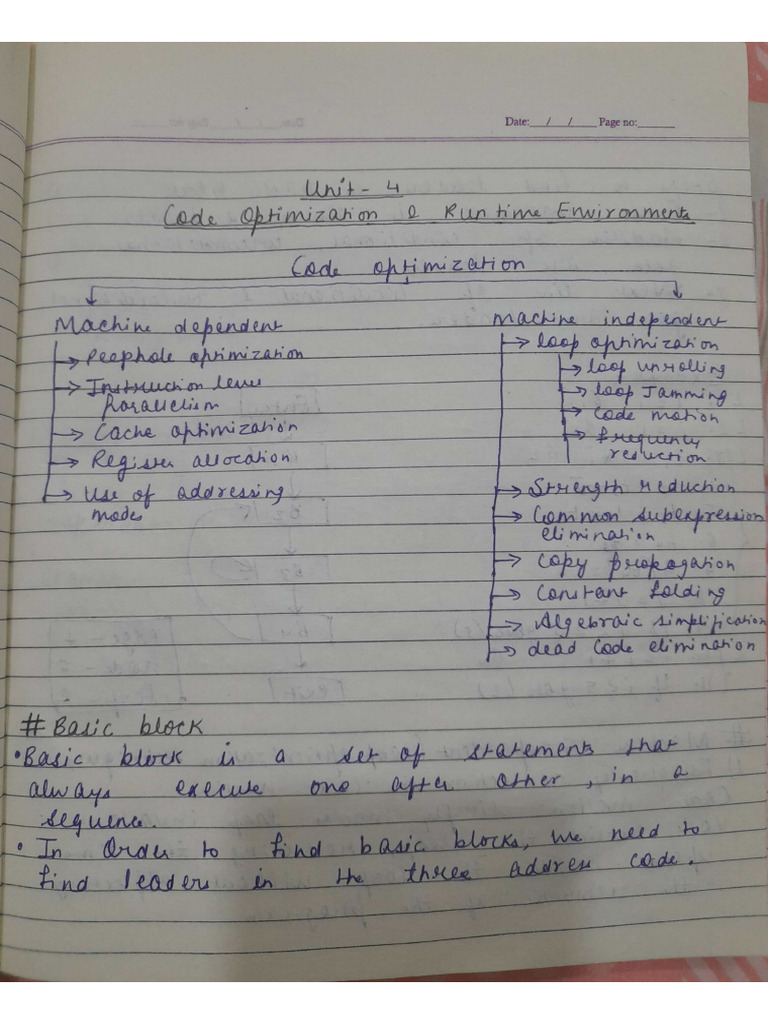 Date: / / Page no:
Unit - 4
Code Optimization & Run time Environments
Code optimization
Machine dependent
→ Peephole optimization
→ Instruction level
Parallelism
→ Cache optimization
→ Register allocation
→ Use of addressing
modes
Machine independent
→ loop optimization
→ loop unrolling
→ loop Jamming
→ Code motion
→ frequency
reduction
→ Strength reduction
→ Common subexpression
elimination
→ Copy propogation
→ Constant folding
→ Algebraic simplification
→ dead code elimination
# Basic block
• Basic block is a set of statements that
always execute one after other, in a
sequence.
• In Order to find basic blocks, we need to
find leaders in the three address code.